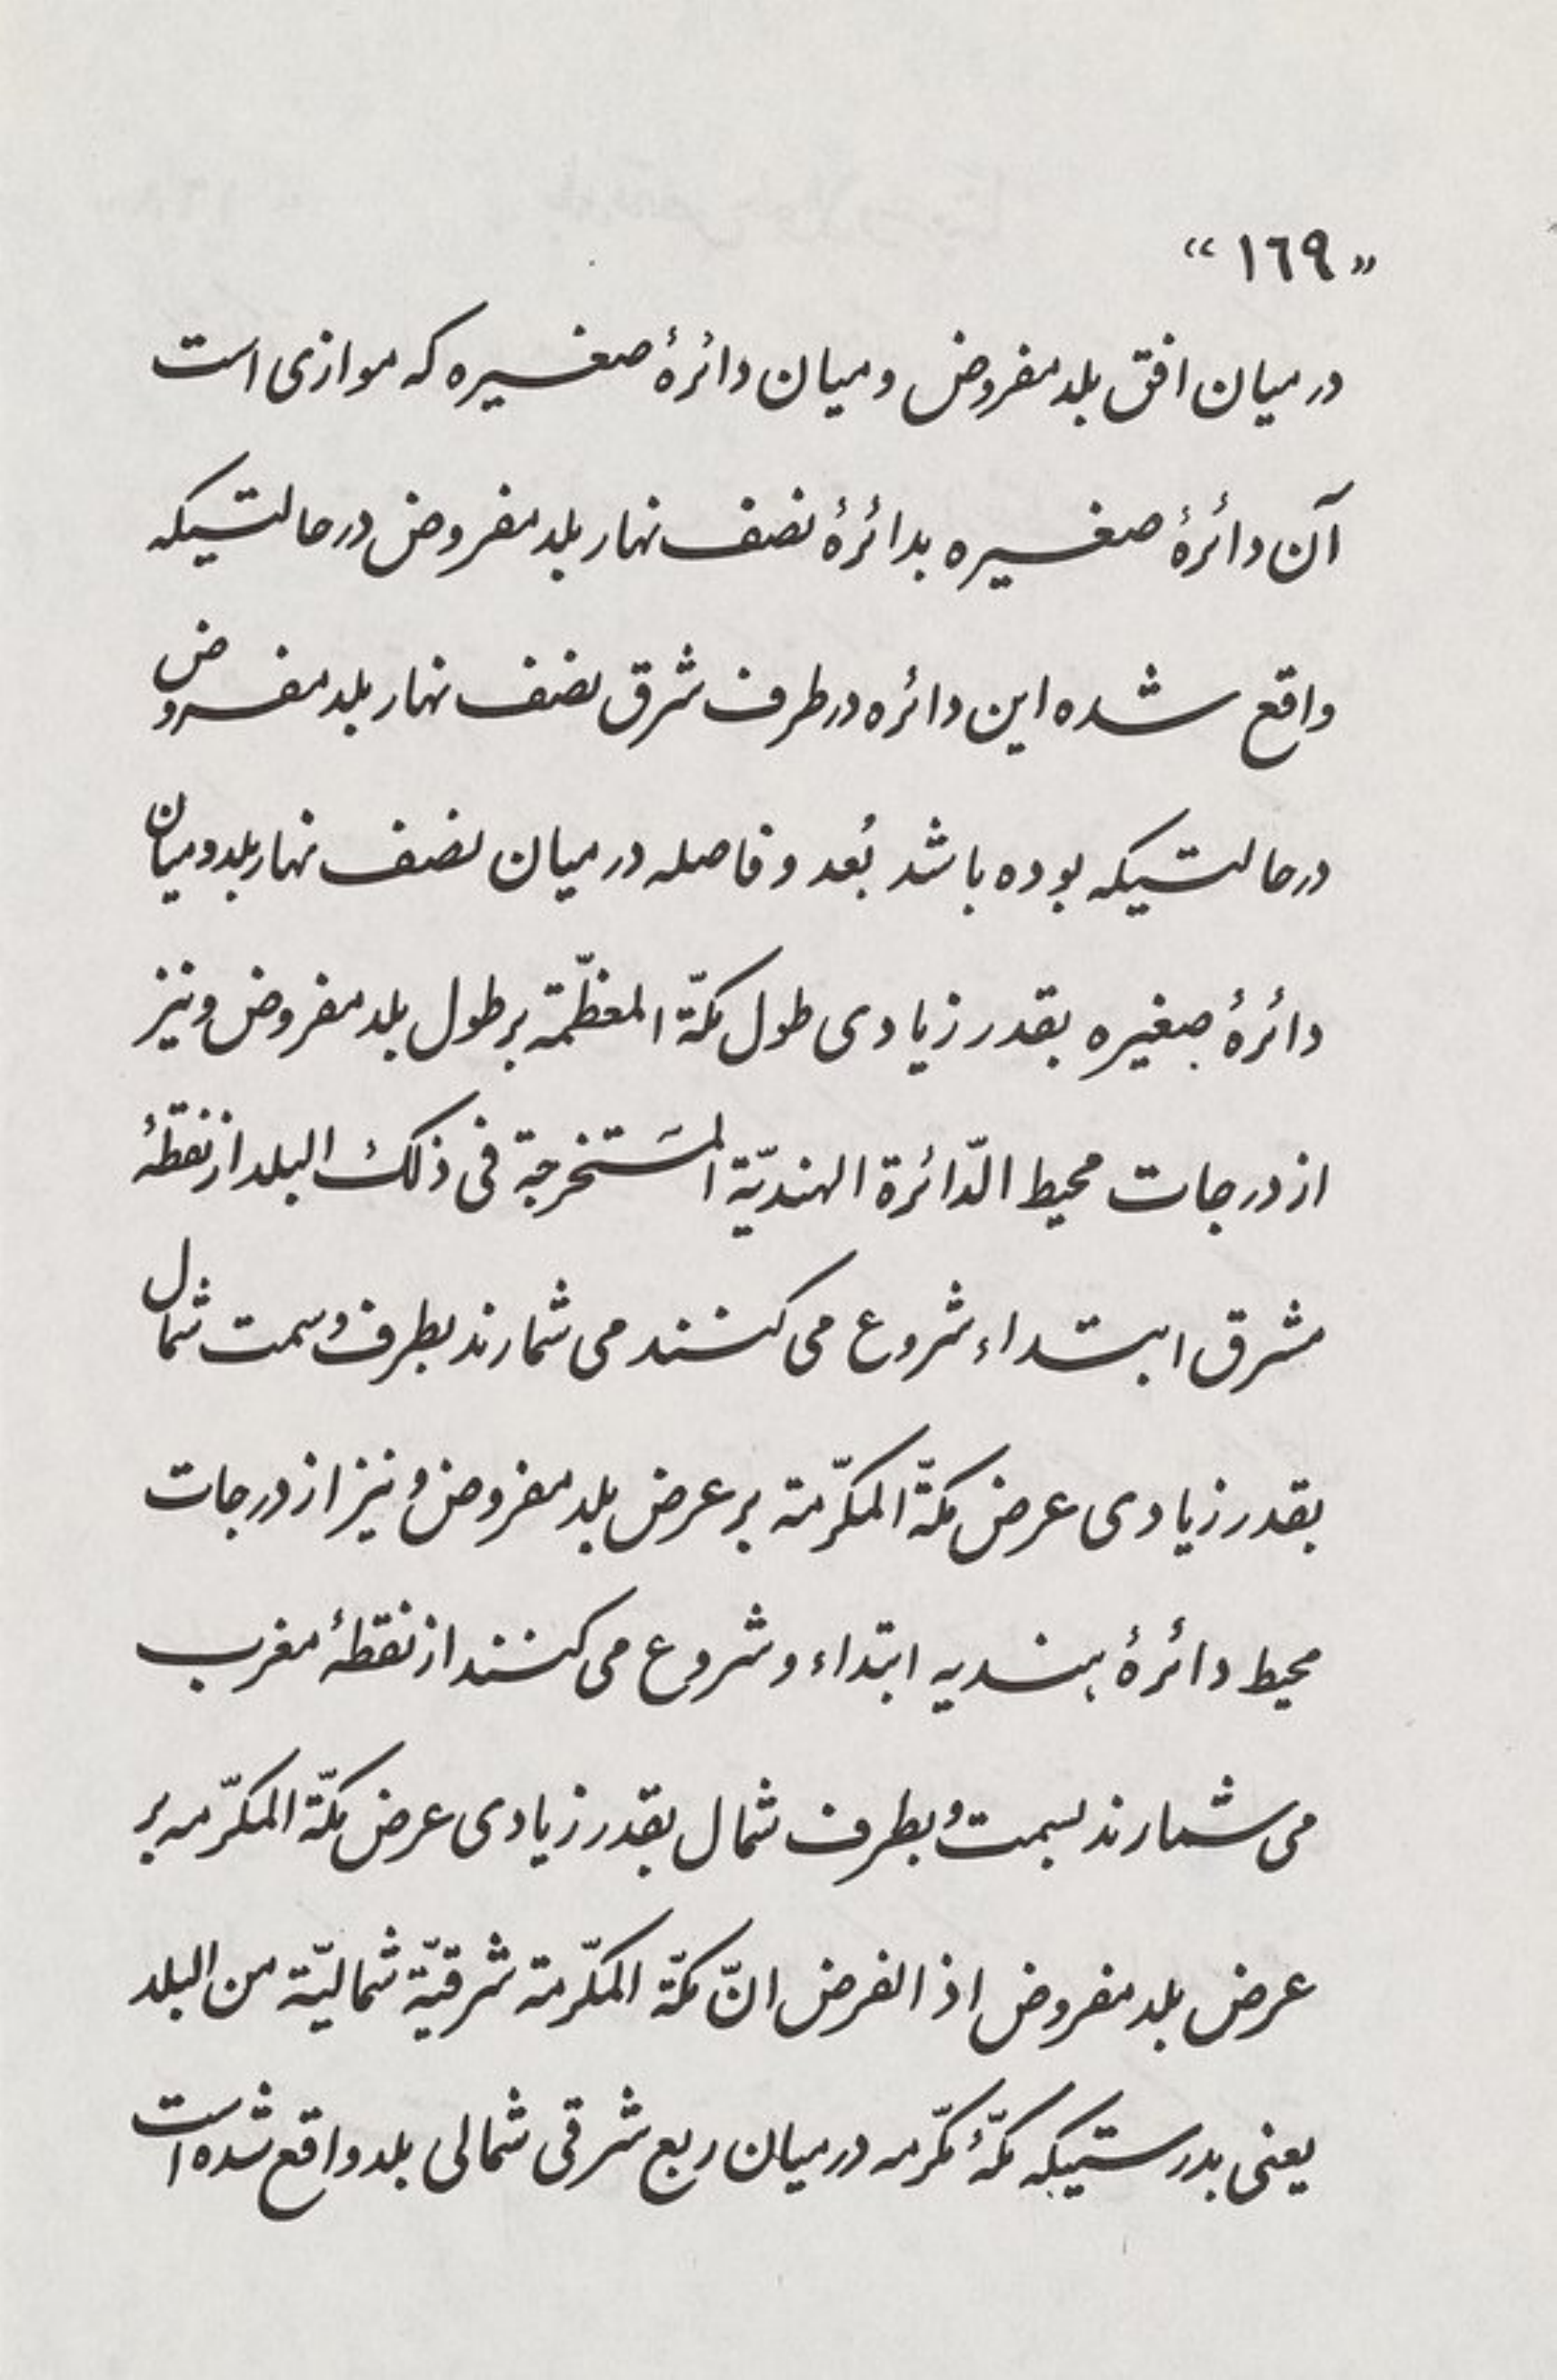 « ١٦٩ »
در میان افق بلد مفروض و میان دائرۀ صغیره که موازی است
آن دائرۀ صغیره بدائرۀ نصف نهار بلد مفروض در حالتیکه
واقع شده این دائره در طرف شرق نصف نهار بلد مفروض
در حالتیکه بوده باشد بُعد و فاصله در میان نصف نهار بلد و میان
دائرۀ صغیره بقدر زیادی طول مکّة المعظّمة بر طول بلد مفروض و نیز
از درجات محیط الدّائرة الهندیّة المسَتخرجة فی ذلک البلد از نقطۀ
مشرق ابتداء شروع می کنند می شمارند بطرف و سمت شمال
بقدر زیادی عرض مکّة المکرّمة بر عرض بلد مفروض و نیز از درجات
محیط دائرۀ هندیه ابتداء و شروع می کنند از نقطۀ مغرب
می شمارند بسمت و بطرف شمال بقدر زیادی عرض مکّة المکرّمه بر
عرض بلد مفروض اذ الفرض انّ مکّة المکرّمة شرقیّة شمالیّة من البلد
یعنی بدرستیکه مکّۀ مکرّمه در میان ربع شرقی شمالی بلد واقع شده است